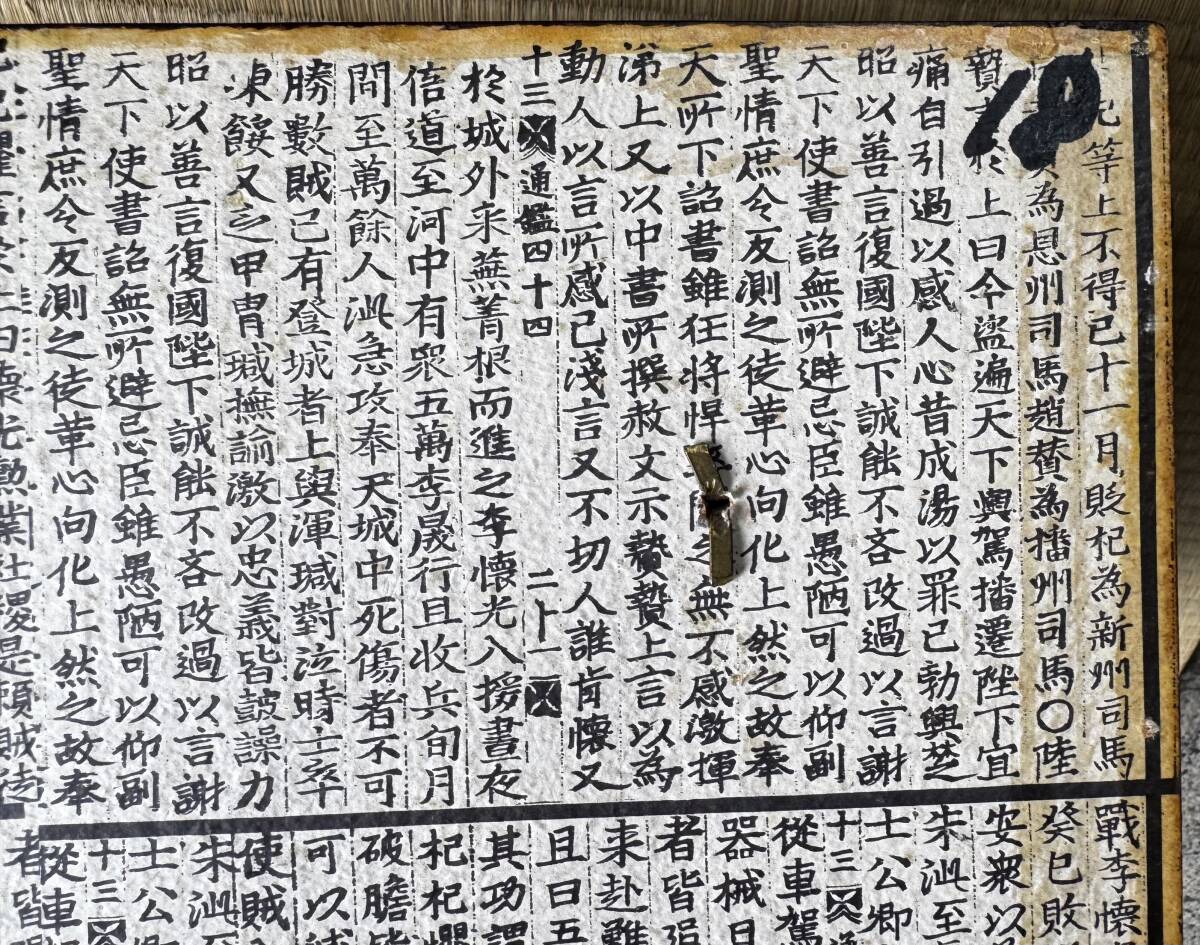 元等上不得已十一月貶杞為新州司馬
為恩州司馬趙賛為播州司馬〇陸
贄於上曰今盜遍天下輿駕播遷陛下宜
痛自引過以感人心昔成湯以罪己勃興楚
昭以善言復國陛下誠能不吝改過以言謝
天下使書詔無所避忌臣雖愚陋可以仰副
聖情庶令反測之徒革心向化上然之故奉
天所下詔書雖狂將悍之無不感激揮
涕上又以中書所撰赦文示贄贄上言以為
動人以言所感已淺言又不切人誰肯懷又
十三 通鑑四十四 二十一
於城外采蕪菁根而進之李懷光入援晝夜
倍道至河中有衆五萬李晟行且收兵旬月
間至萬餘人泚急攻奉天城中死傷者不可
勝數賊已有登城者上與渾瑊對泣時士卒
凍餒又乏甲冑瑊撫諭激以忠義皆鼓譟力
昭以善言復國陛下誠能不吝改過以言謝
天下使書詔無所避忌臣雖愚陋可以仰副
聖情庶令反測之徒革心向化上然之故奉
曰懷光勲業社稷是賴賊徒
戰李懷
癸巳敗
安衆以
朱泚至
士公卿
十三
從車駕
器械日
者皆追
来赴難
且曰五
其功謂
杞杞懼
破膽皆
可以
使賊
朱泚至
士公
十三
從車
者皆